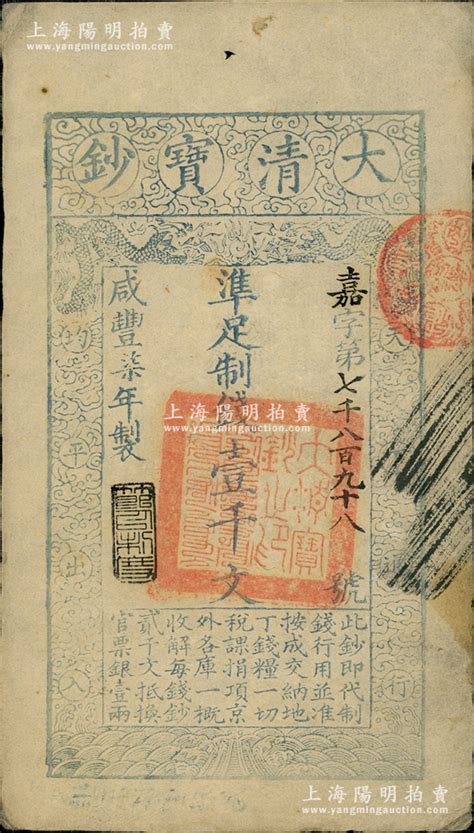 上海陽明拍賣
www.yangmingauction.com
上海陽明拍賣
www.yangmingauction.com
大清寶鈔
天
行
嘉字第七千八百九十八號
準足制錢壹千文
咸豐柒年製
均平出入
大清寶鈔之印
此鈔即代制
錢行用並准
按成交納地
丁錢糧一切
稅課捐項京
外各庫一概
收解每錢鈔
貳千文抵換
官票銀壹兩
上海陽明拍賣
www.yangmingauction.com
上海陽明拍賣
www.yangmingauction.com